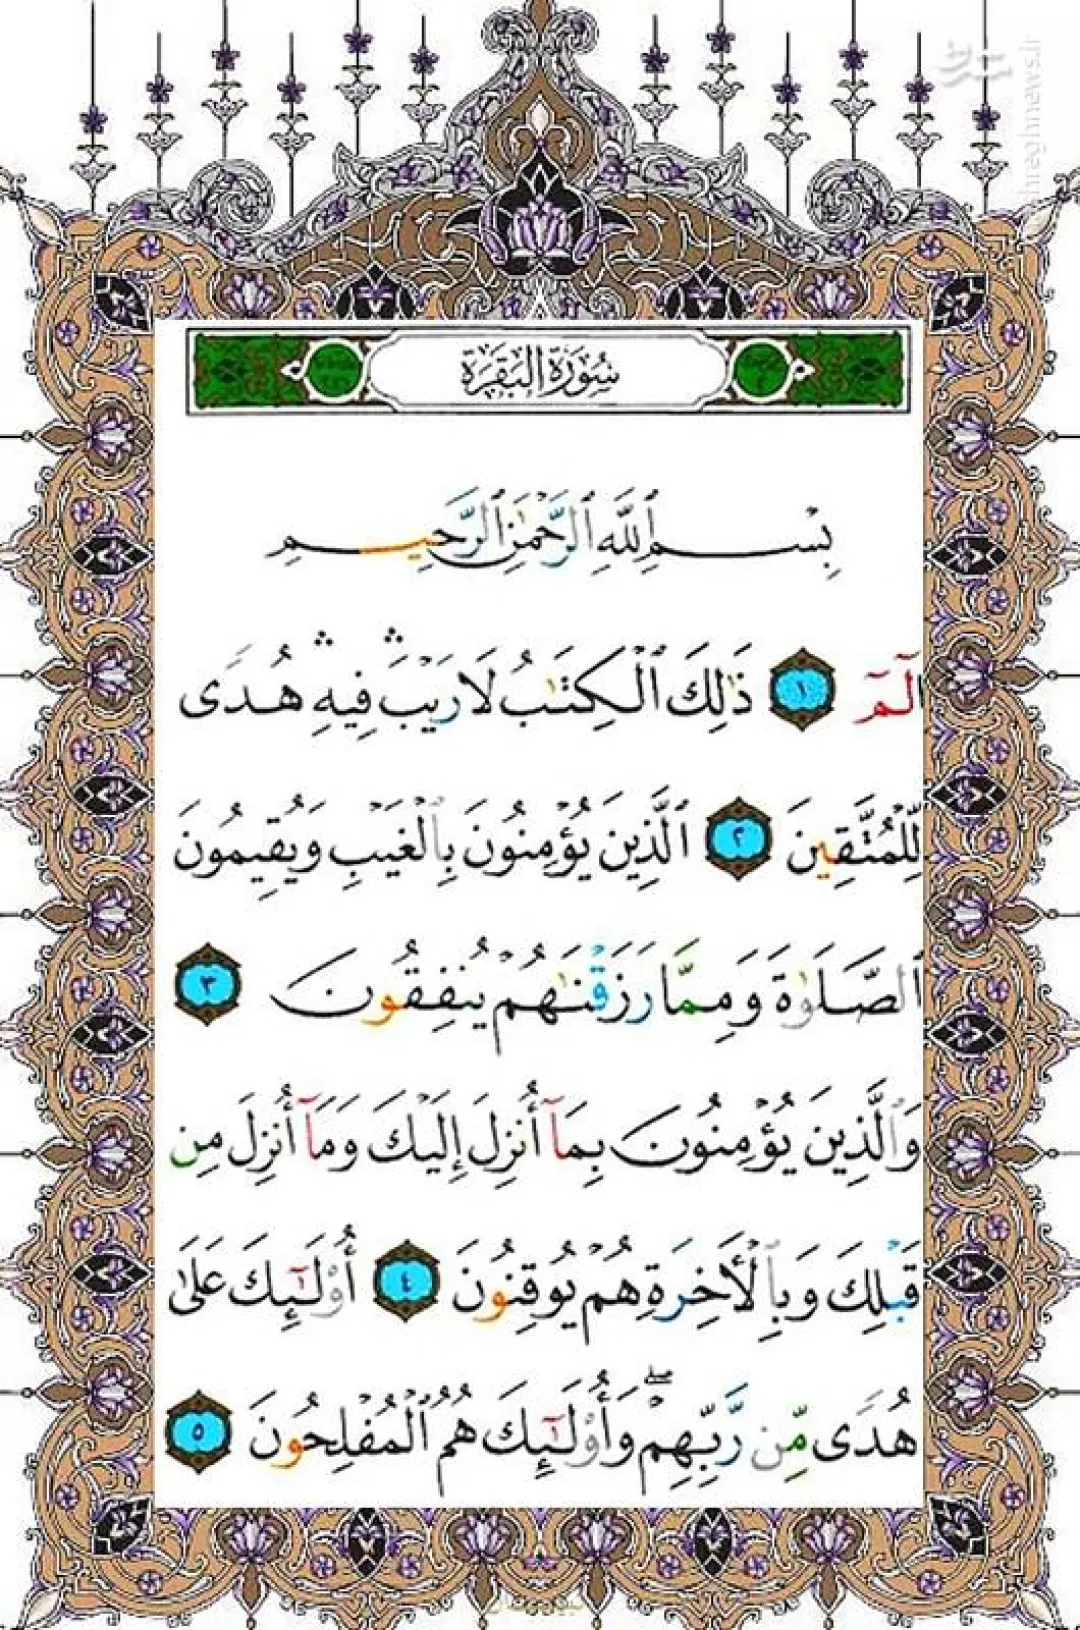 سُورَةُ البَقَرَةِ
بِسْمِ ٱللَّهِ ٱلرَّحْمَٰنِ ٱلرَّحِيمِ
الٓمٓ ١ ذَٰلِكَ ٱلْكِتَٰبُ لَا رَيْبَ ۛ فِيهِ ۛ هُدًى
لِّلْمُتَّقِينَ ٢ ٱلَّذِينَ يُؤْمِنُونَ بِٱلْغَيْبِ وَيُقِيمُونَ
ٱلصَّلَوٰةَ وَمِمَّا رَزَقْنَٰهُمْ يُنفِقُونَ ٣
وَٱلَّذِينَ يُؤْمِنُونَ بِمَآ أُنزِلَ إِلَيْكَ وَمَآ أُنزِلَ مِن
قَبْلِكَ وَبِٱلْأَخِرَةِ هُمْ يُوقِنُونَ ٤ أُوْلَٰٓئِكَ عَلَىٰ
هُدًى مِّن رَّبِّهِمْ ۖ وَأُوْلَٰٓئِكَ هُمُ ٱلْمُفْلِحُونَ ٥